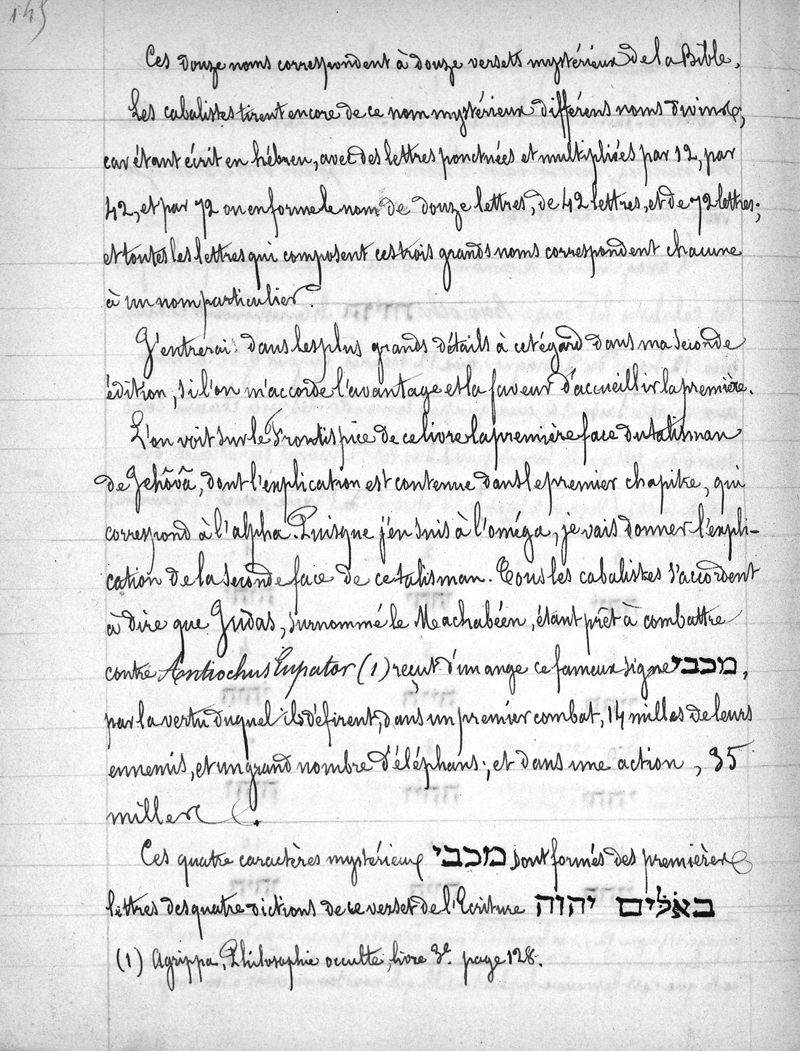 145
Ces douze noms correspondent à douze versets mystérieux de la Bible.
Les cabalistes tirent encore de ce nom mystérieux différens noms divins;
car étant écrit en hébreu, avec des lettres ponctuées et multipliées par 12, par
42, et par 72 on en forme le nom de douze lettres, de 42 lettres, et de 72 lettres;
et toutes les lettres qui composent ces trois grands noms correspondent chacune
à un nom particulier.
J'entrerai dans les plus grands détails à cet égard dans ma seconde
édition, si l'on m'accorde l'avantage et la faveur d'accueillir la première.
L'on voit sur le Frontispice de ce livre la première face du talisman
de Jehôvâ, dont l'explication est contenue dans le premier chapitre, qui
correspond à l'alpha. Puisque j'en suis à l'oméga, je vais donner l'expli-
cation de la seconde face de ce talisman. Tous les cabalistes s'accordent
à dire que Judas, surnommé le Machabéen, étant prêt à combattre
contre Antiochus Eupator (1) reçut d'un ange ce fameux signe מכבי,
par la vertu duquel ils défirent, dans un premier combat, 14 milles de leurs
ennemis, et un grand nombre d'éléphans; et dans une action, 35
milles.
Ces quatre caractères mystérieux מכבי sont formés des premières
lettres des quatre dictions de ce verset de l'Ecriture באלים יהוה
(1) Agrippa, Philosophie occulte, livre 3e page 128.